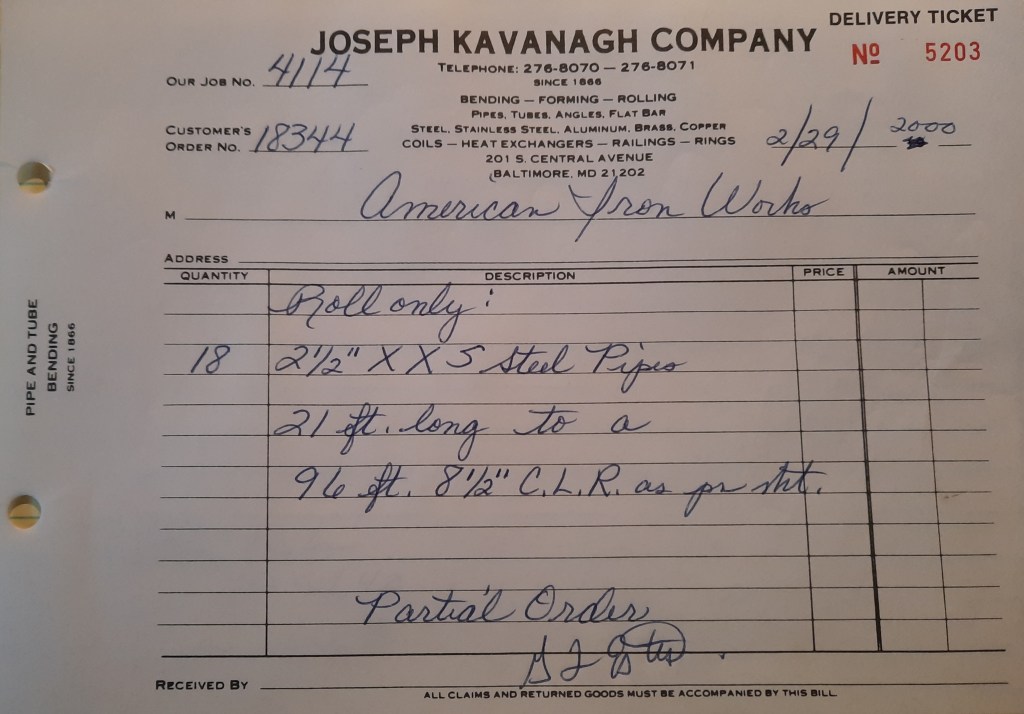 DELIVERY TICKET
JOSEPH KAVANAGH COMPANY
Nº 5203
TELEPHONE: 276-8070 — 276-8071
SINCE 1866
OUR JOB NO. 4114
BENDING — FORMING — ROLLING
PIPES, TUBES, ANGLES, FLAT BAR
STEEL, STAINLESS STEEL, ALUMINUM, BRASS, COPPER
COILS — HEAT EXCHANGERS — RAILINGS — RINGS
201 S. CENTRAL AVENUE
BALTIMORE, MD 21202
CUSTOMER'S
ORDER NO. 18344
2/29/ 2000
M American Iron Works
ADDRESS
QUANTITY DESCRIPTION PRICE AMOUNT
Roll only:
18 2 1/2" X X S Steel Pipes
21 ft. long to a
96 ft. 8 1/2" C.L.R. as pr sht.
Partial Order
RECEIVED BY
ALL CLAIMS AND RETURNED GOODS MUST BE ACCOMPANIED BY THIS BILL
PIPE AND TUBE
BENDING
SINCE 1866